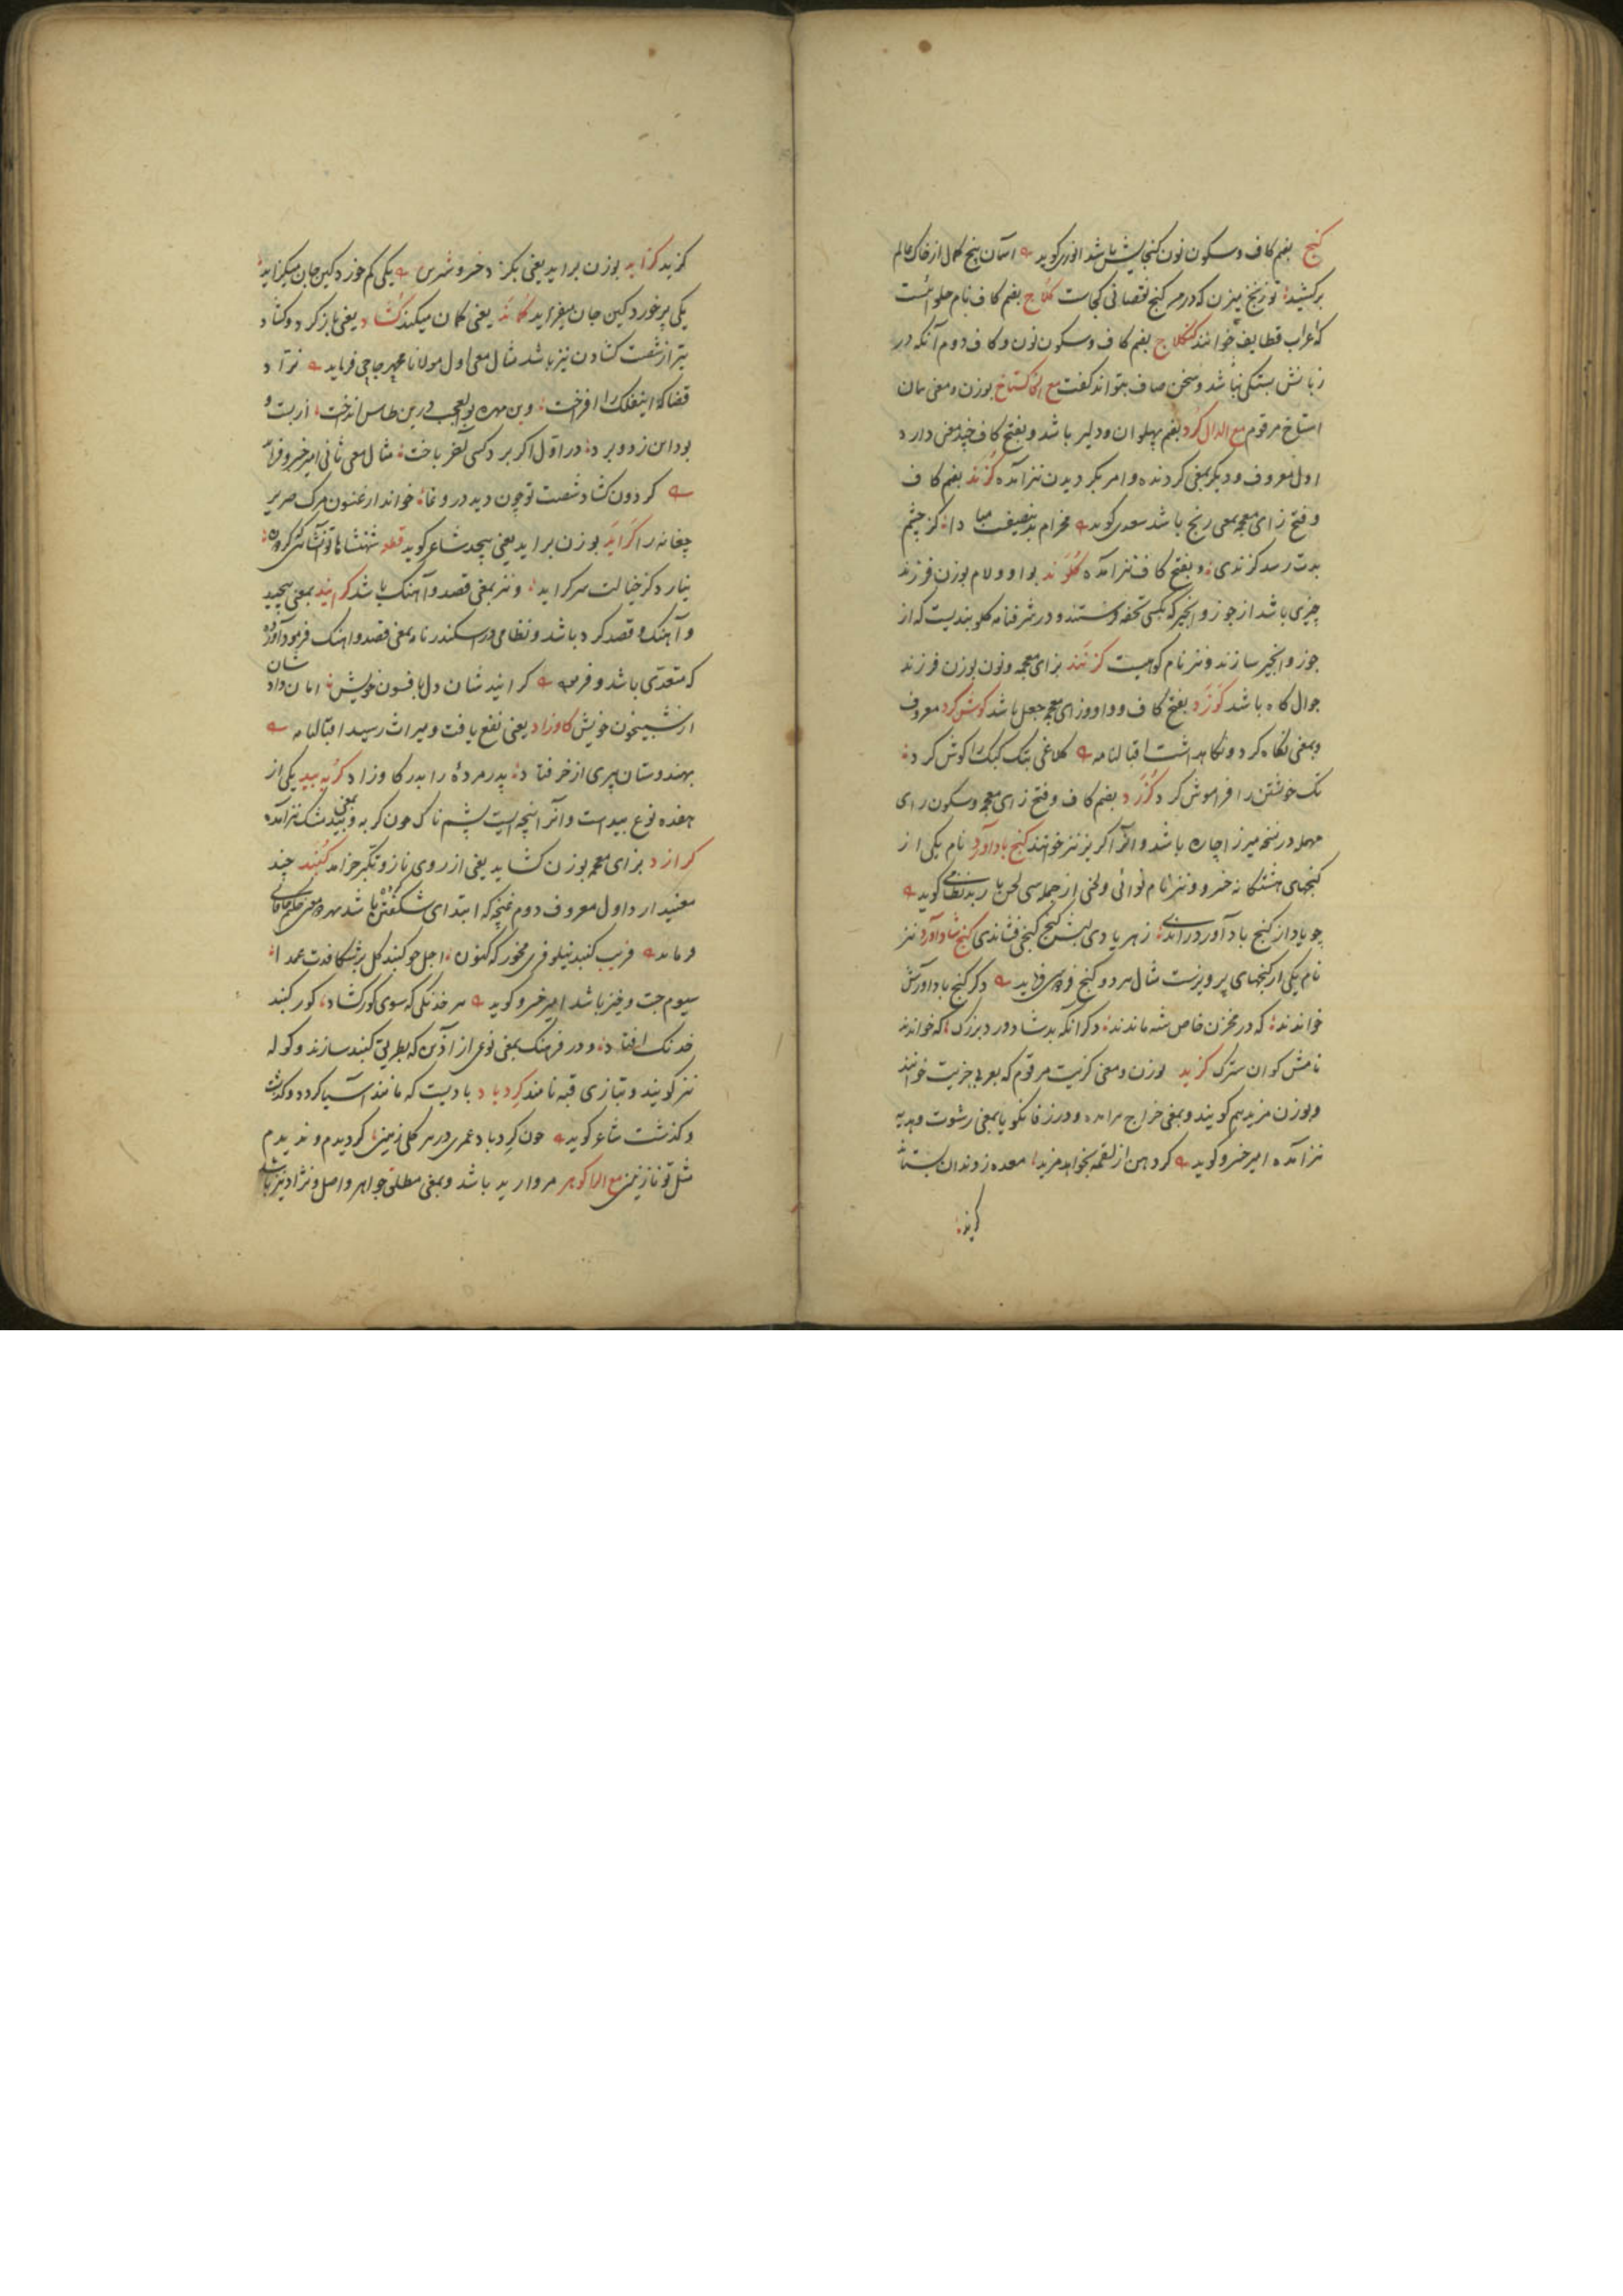 کنج بضم کاف و سکون نون کنجایش باشد انوری کوید آسمان پنج کمال از خاک عالم
برکشید تو زنخ میزن که در من کنج نقصانی کجاست کلاج بضم کاف نام حلوائیست
که اعراب قطایف خوانند کنکلاج بضم کاف و سکون نون و کاف دوم آنکه در
زبانش بستکی باشد و سخن صاف نتواند کفت مع الخا کستاخ بوزن و معنی همان
استاخ مرقوم مع الدال کرد بضم پهلوان و دلیر باشد و بفتح کاف چند معنی دارد
اول معروف و دیکر بمعنی کردنده و امر بکردیدن نیز آمده کزند بضم کاف
و فتح زای معجمه بمعنی رنج باشد سعدی کوید مخرام بدین صفت مبادا کز چشم
بدت رسد کزندی و بفتح کاف نیز آمده کلوند بواو و لام بوزن فرزند
چیزی باشد از جوز و انجیر که بکسی تحفه فرستند و در شرفنامه کلوبندیست که از
جوز و انجیر سازند و نیز نام کوهیست کزنند بزای معجمه و نون بوزن فرزند
جوال کاه باشد کوزد بفتح کاف و واو و زای معجمه جعل باشد کوش کرد معروف
و بمعنی نکاه کرد و نکاهداشت اقبالنامه کلاغی تک کبک را کوش کرد
تک خویشتن را فراموش کرد کزرد بضم کاف و فتح زای معجمه و سکون رای
مهمله در نسخه میرزا چاره باشد و انرا کزیر نیز خوانند کنج بادآورد نام یکی از
کنجهای هشتکانه خسرو و نیز نام نوائی و لحنی از جمله سی لحن باربد نظامی کوید
چو باد از کنج بادآورد راندی ز هر بادی لبش کنجی فشاندی کنج شادآورد نیز
نام یکی از کنجهای پرویزست مثال هر دو کنج فردوسی فرماید دکر کنج بادآورش
خواندند که در مخزن خاص شه ماندند دکر آنکه بد شادورد بزرک که خوانند
نامش کوان سترک کزید بوزن و معنی کزیت مرقوم که بعربی جزیت خوانند
و بوزن مزید هم کویند و بمعنی خراج هم آمده و در زفانکویا بمعنی رشوت و هدیه
نیز آمده امیر خسرو کوید کر دهن از لقمه بخواهد مزید معده ز دندان بستاند
کزید
کزید کزاید بوزن براید یعنی بکزد خسرو شیرین یکی کم خورد کین جان میکزاید
یکی پر خورد کین جان میفزاید کماند یعنی کمان میکند کشاد یعنی باز کرد و کشاد
تیر از شست کشادن نیز باشد مثال معنی اول مولانا عمید جاجی فرماید نراد
قضا که اینفلک را افراخت وین مهره بوالعجب درین طاس انداخت
بود این زد و برد در اول اکر برد کسی آخر باخت مثال معنی ثانی امیر خسرو فرماید
کردون کشاد شصت تو چون دید در وغا خواند ارغنون مرک صریر
چغانه را کراید بوزن براید یعنی پیچد شاعر کوید قطعه شهنشاها
نیارد کز خیالت سر کراید و نیز بمعنی قصد و آهنک باشد کرانید بمعنی پیچید
و آهنک و قصد کرد باشد و نظامی در اسکندرنامه بمعنی قصد و اهنک فرمود آورده
که متعدی باشد و فرموده کرانید شان دل بافسون خویش امان دادشان
از شبیخون خویش کاوزاد یعنی نفع یافت و میراث رسید اقبالنامه
بهندوستان پیری از خر فتاد پدر مرده را بدر کاو زاد کربه بید یکی از
هفده نوع بیداست و آنرا پنجه ایست پشم ناک چون کربه و بمعنی بیدمشک نیز آمده
کرازد بزای معجمه بوزن کشاید یعنی از روی ناز و تکبر خرامد کنبد چند
معنی دارد اول معروف دوم غنچه که ابتدای شکفتن باشد بهر دو معنی حکیم خاقانی
فرماید فریب کنبد نیلوفری مخور که کنون اجل چو کنبد کل برشکافدت عمدا
سیوم جست و خیز باشد امیر خسرو کوید هر خدنکی که سوی کور کشاد کور کنبد
خدنک افتاد و در فرهنک بمعنی نوعی از آذین که بطریق کنبد سازند و کوله
نیز کویند و بتازی قبه نامند کردباد بادیست که مانند آسیا کردد و کذشت
و کذشت شاعر کوید چون کردباد عمری در هر کلی زمین کردیدم و ندیدم
مثل تو نازنین مع الرا کوهر مروارید باشد و بمعنی مطلق جواهر و اصل و نژاد نیز باشد